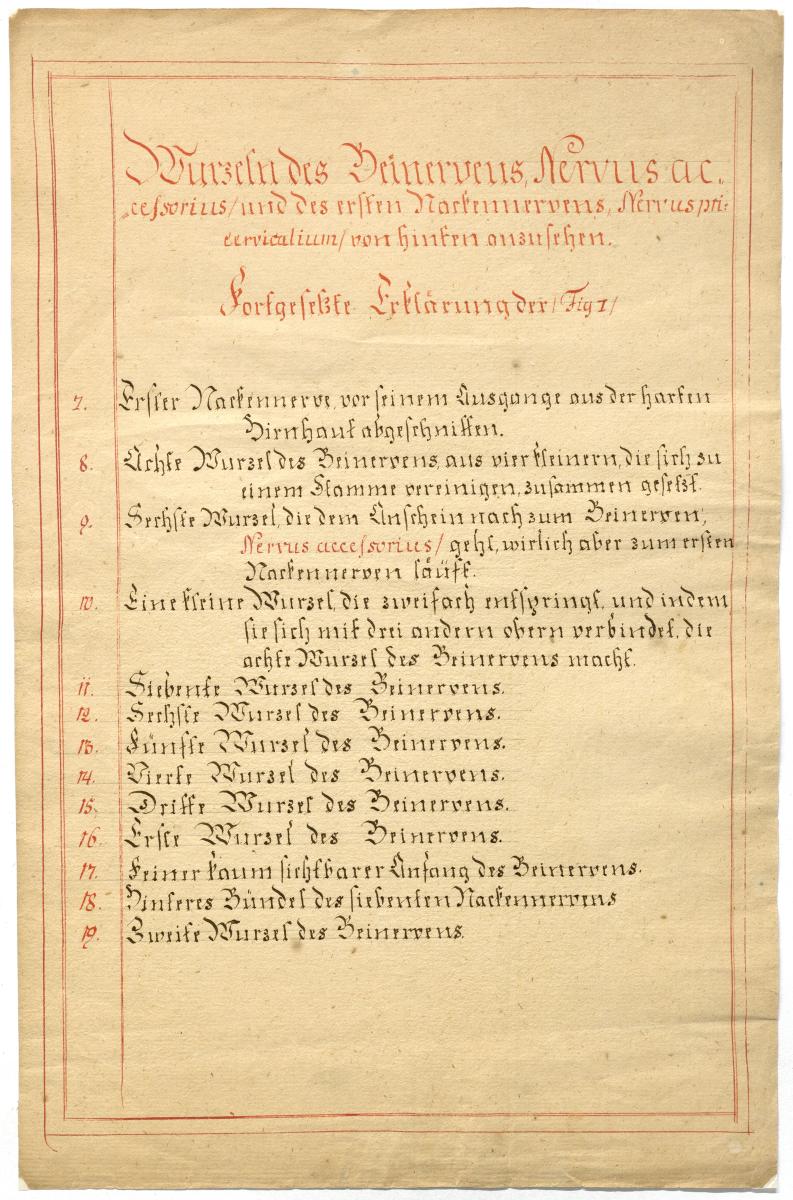 Wurzeln des Beinervens, Nervus ac-
cessorius/ und des ersten Nackennervens, Nervus pri-
cervicalium/ von hinten anzusehen.
Fortgesetzte Erklärung der/ Fig I/
7. Erster Nackennerve, vor seinem Ausgange aus der harten
Hirnhaut abgeschnitten.
8. Achte Wurzel des Beinervens, aus vier kleinern, die sich zu
einem Stamme vereinigen, zusammen gesetzt.
9. Sechste Wurzel, die dem Anschein nach zum Beinerven,
Nervus accessorius/ geht, wirlich aber zum ersten
Nackennerven läüft.
10. Eine kleine Wurzel, die zweifach entspringt, und indem
sie sich mit drei andern obern verbindet, die
achte Wurzel des Beinervens macht.
11. Siebente Wurzel des Beinervens.
12. Sechste Wurzel des Beinervens.
13. Fünfte Wurzel des Beinervens.
14. Vierte Wurzel des Beinervens.
15. Dritte Wurzel des Beinervens.
16. Erste Wurzel des Beinervens.
17. Feiner kaum sichtbarer Anfang des Beinervens.
18. Hinteres Bündel des siebenten Nackennervens
19. Zweite Wurzel des Beinervens.